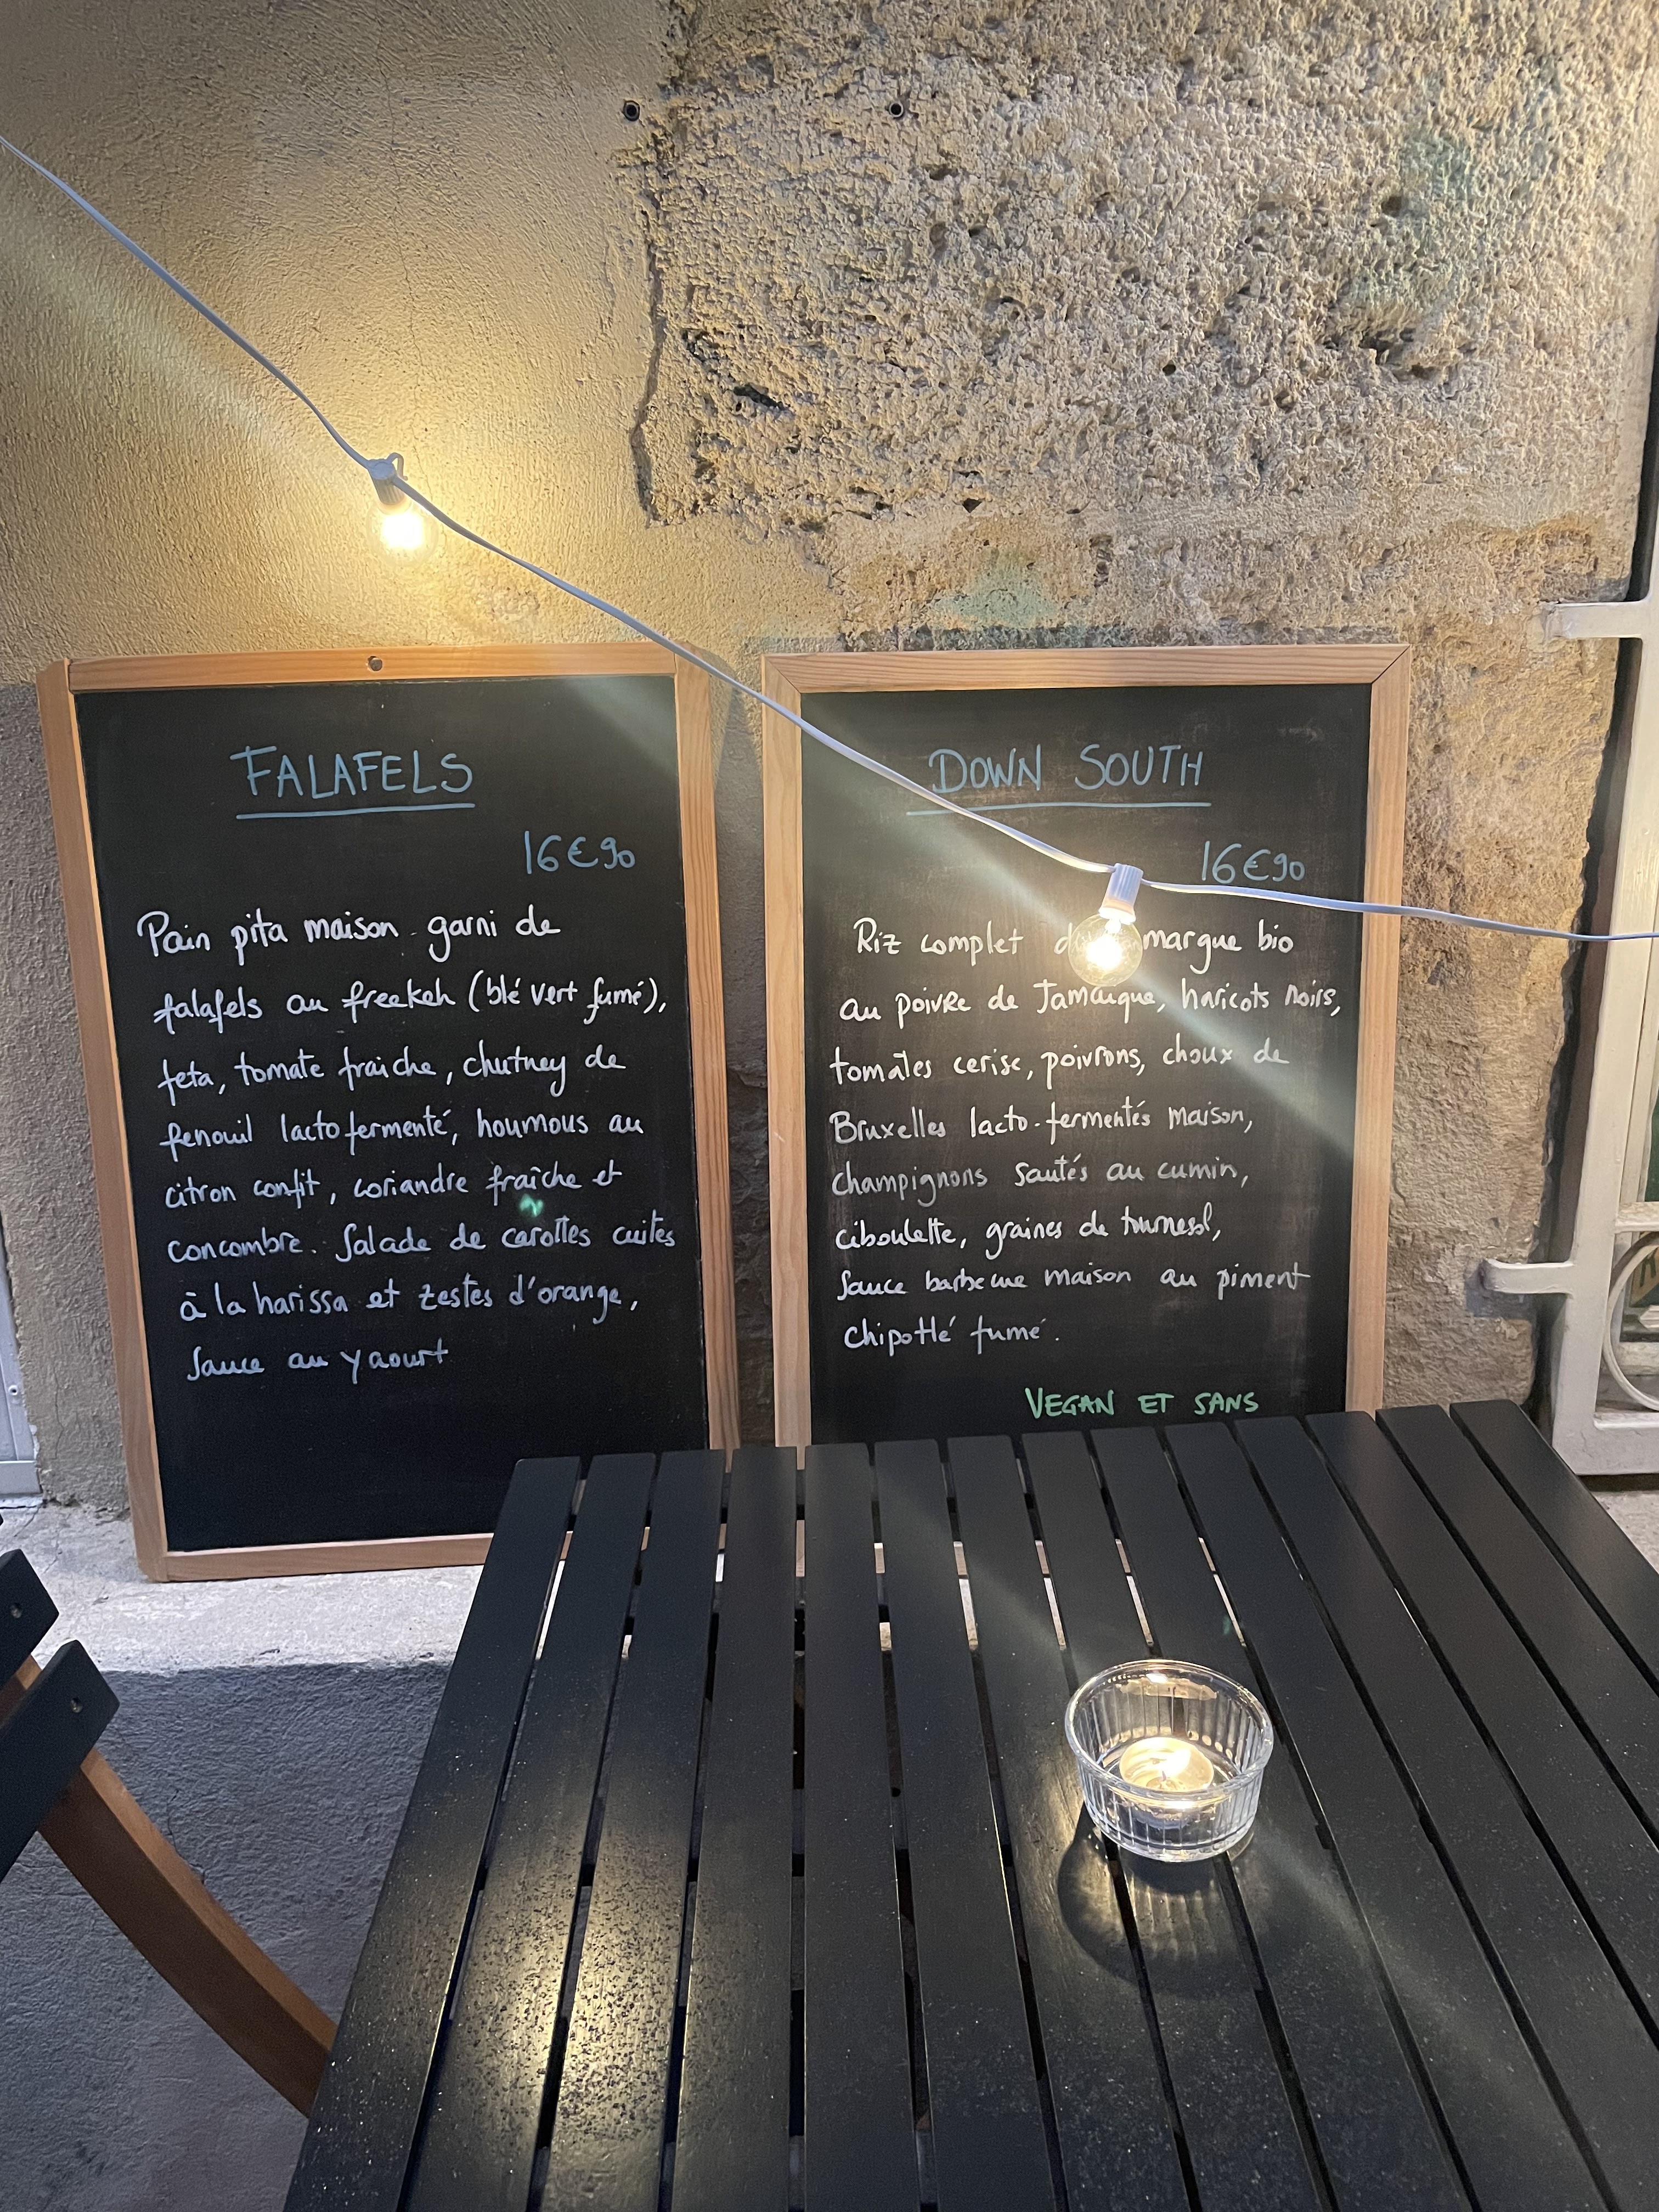 FALAFELS
16€90
Pain pita maison garni de
falafels au freekeh (blé vert fumé),
feta, tomate fraiche, chutney de
fenouil lacto fermenté, houmous au
citron confit, coriandre fraîche et
concombre. Salade de carottes cuites
à la harissa et zestes d'orange,
Sauce au yaourt
DOWN SOUTH
16€90
Riz complet margue bio
au poivre de Jamaïque, haricots noirs,
tomates cerise, poivrons, choux de
Bruxelles lacto-fermentés maison,
champignons sautés au cumin,
ciboulette, graines de tournesol,
Sauce barbecue maison au piment
chipotlé fumé.
VEGAN ET SANS